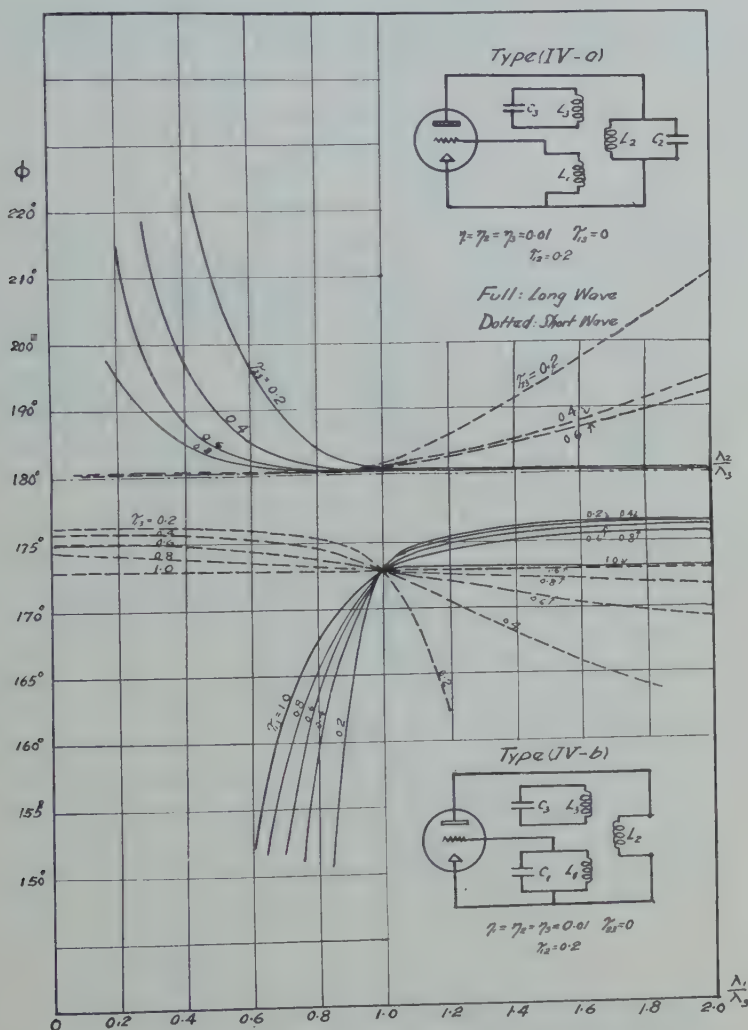 Type(IV-a)
C3 L3
L2 C2
L1
η = η2 = η3 = 0.01 τ13 = 0
τ12 = 0.2
Full: Long Wave
Dotted: Short Wave
ϕ
220°
210°
200°
190°
180°
175°
170°
165°
160°
155°
150°
τ23 = 0.2
0.4
0.6
0.8
τ23 = 0.2
0.4
0.6
λ2/λ3
τ13 = 0.2
0.4
0.6
0.8
1.0
0.2 0.4
0.6 0.8
1.0
0.8
0.6
0.4
0.2
τ13 = 1.0
0.8
0.6
0.4
0.2
Type(IV-b)
C3 L3
L2
C1 L1
η1 = η2 = η3 = 0.01 τ23 = 0
τ12 = 0.2
λ1/λ3
0 0.2 0.4 0.6 0.8 1.0 1.2 1.4 1.6 1.8 2.0